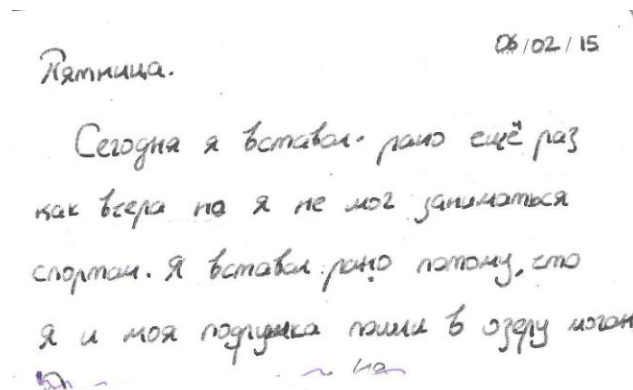 06/02/15
Пятница.
Сегодня я вставал. рано ещё раз
как вчера но я не мог заниматься
спортом. Я вставал рано потому, что
я и моя подружка пошли в озеру
на